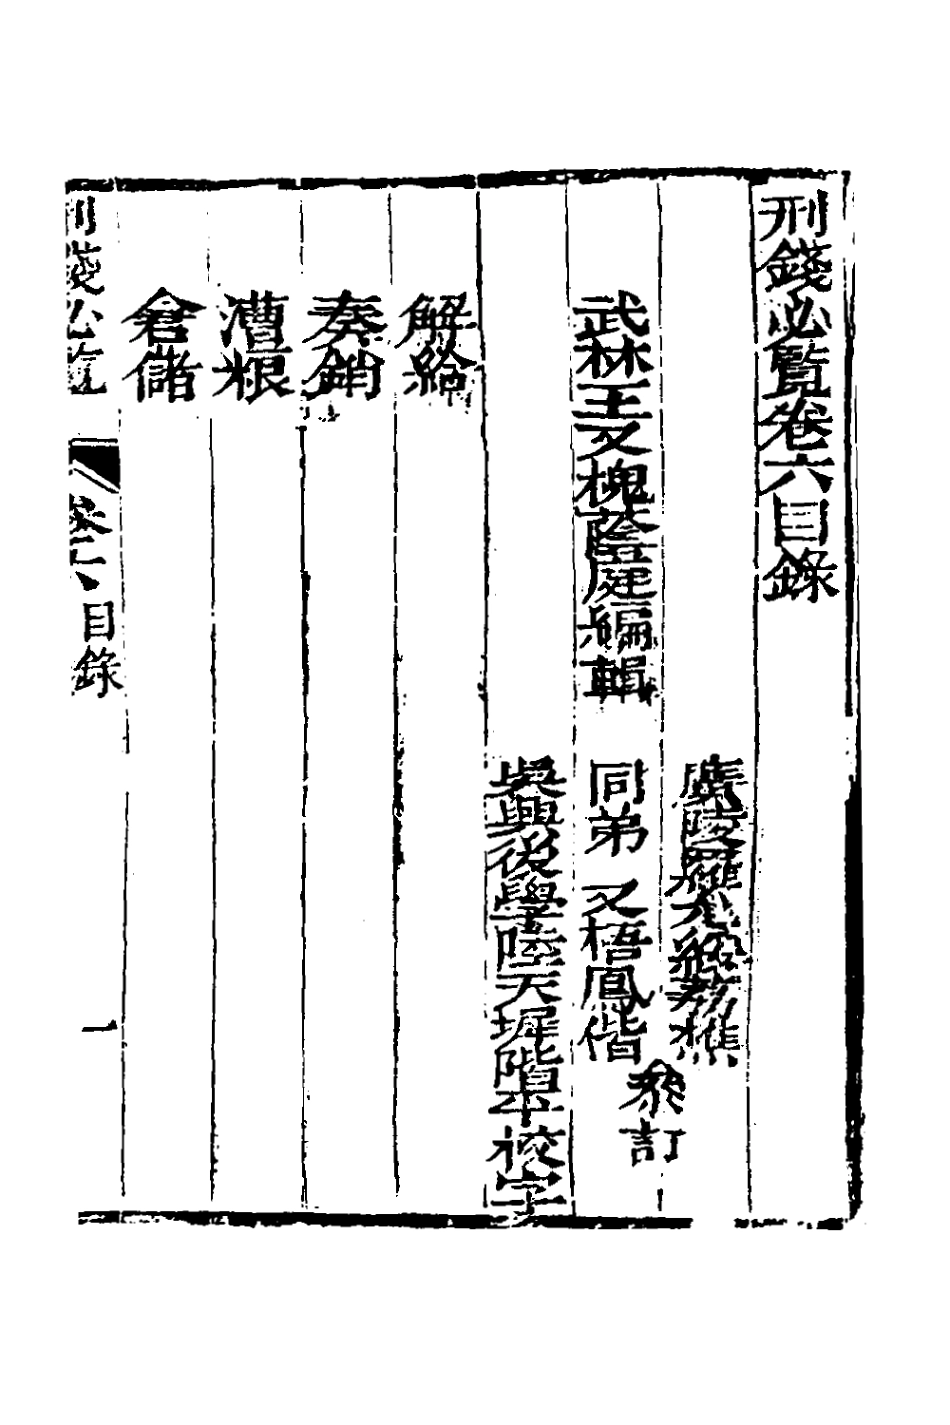 刑錢必覽卷六目錄
廬陵羅允綏荔樵
武林王又槐蔭庭編輯 同弟 又梧鳳偕 叅訂
吳興後學陸天墀階平校字
解給
奏銷
漕粮
倉儲
刑錢必覽 卷六 目錄 一